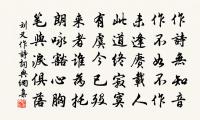 作詩無知音
作不如不作
未逢賡載人
此道終寂寞
有虞今已歿
來者誰為託
朗詠豁心胸
筆與淚俱落
刘叉作詩詞典網集